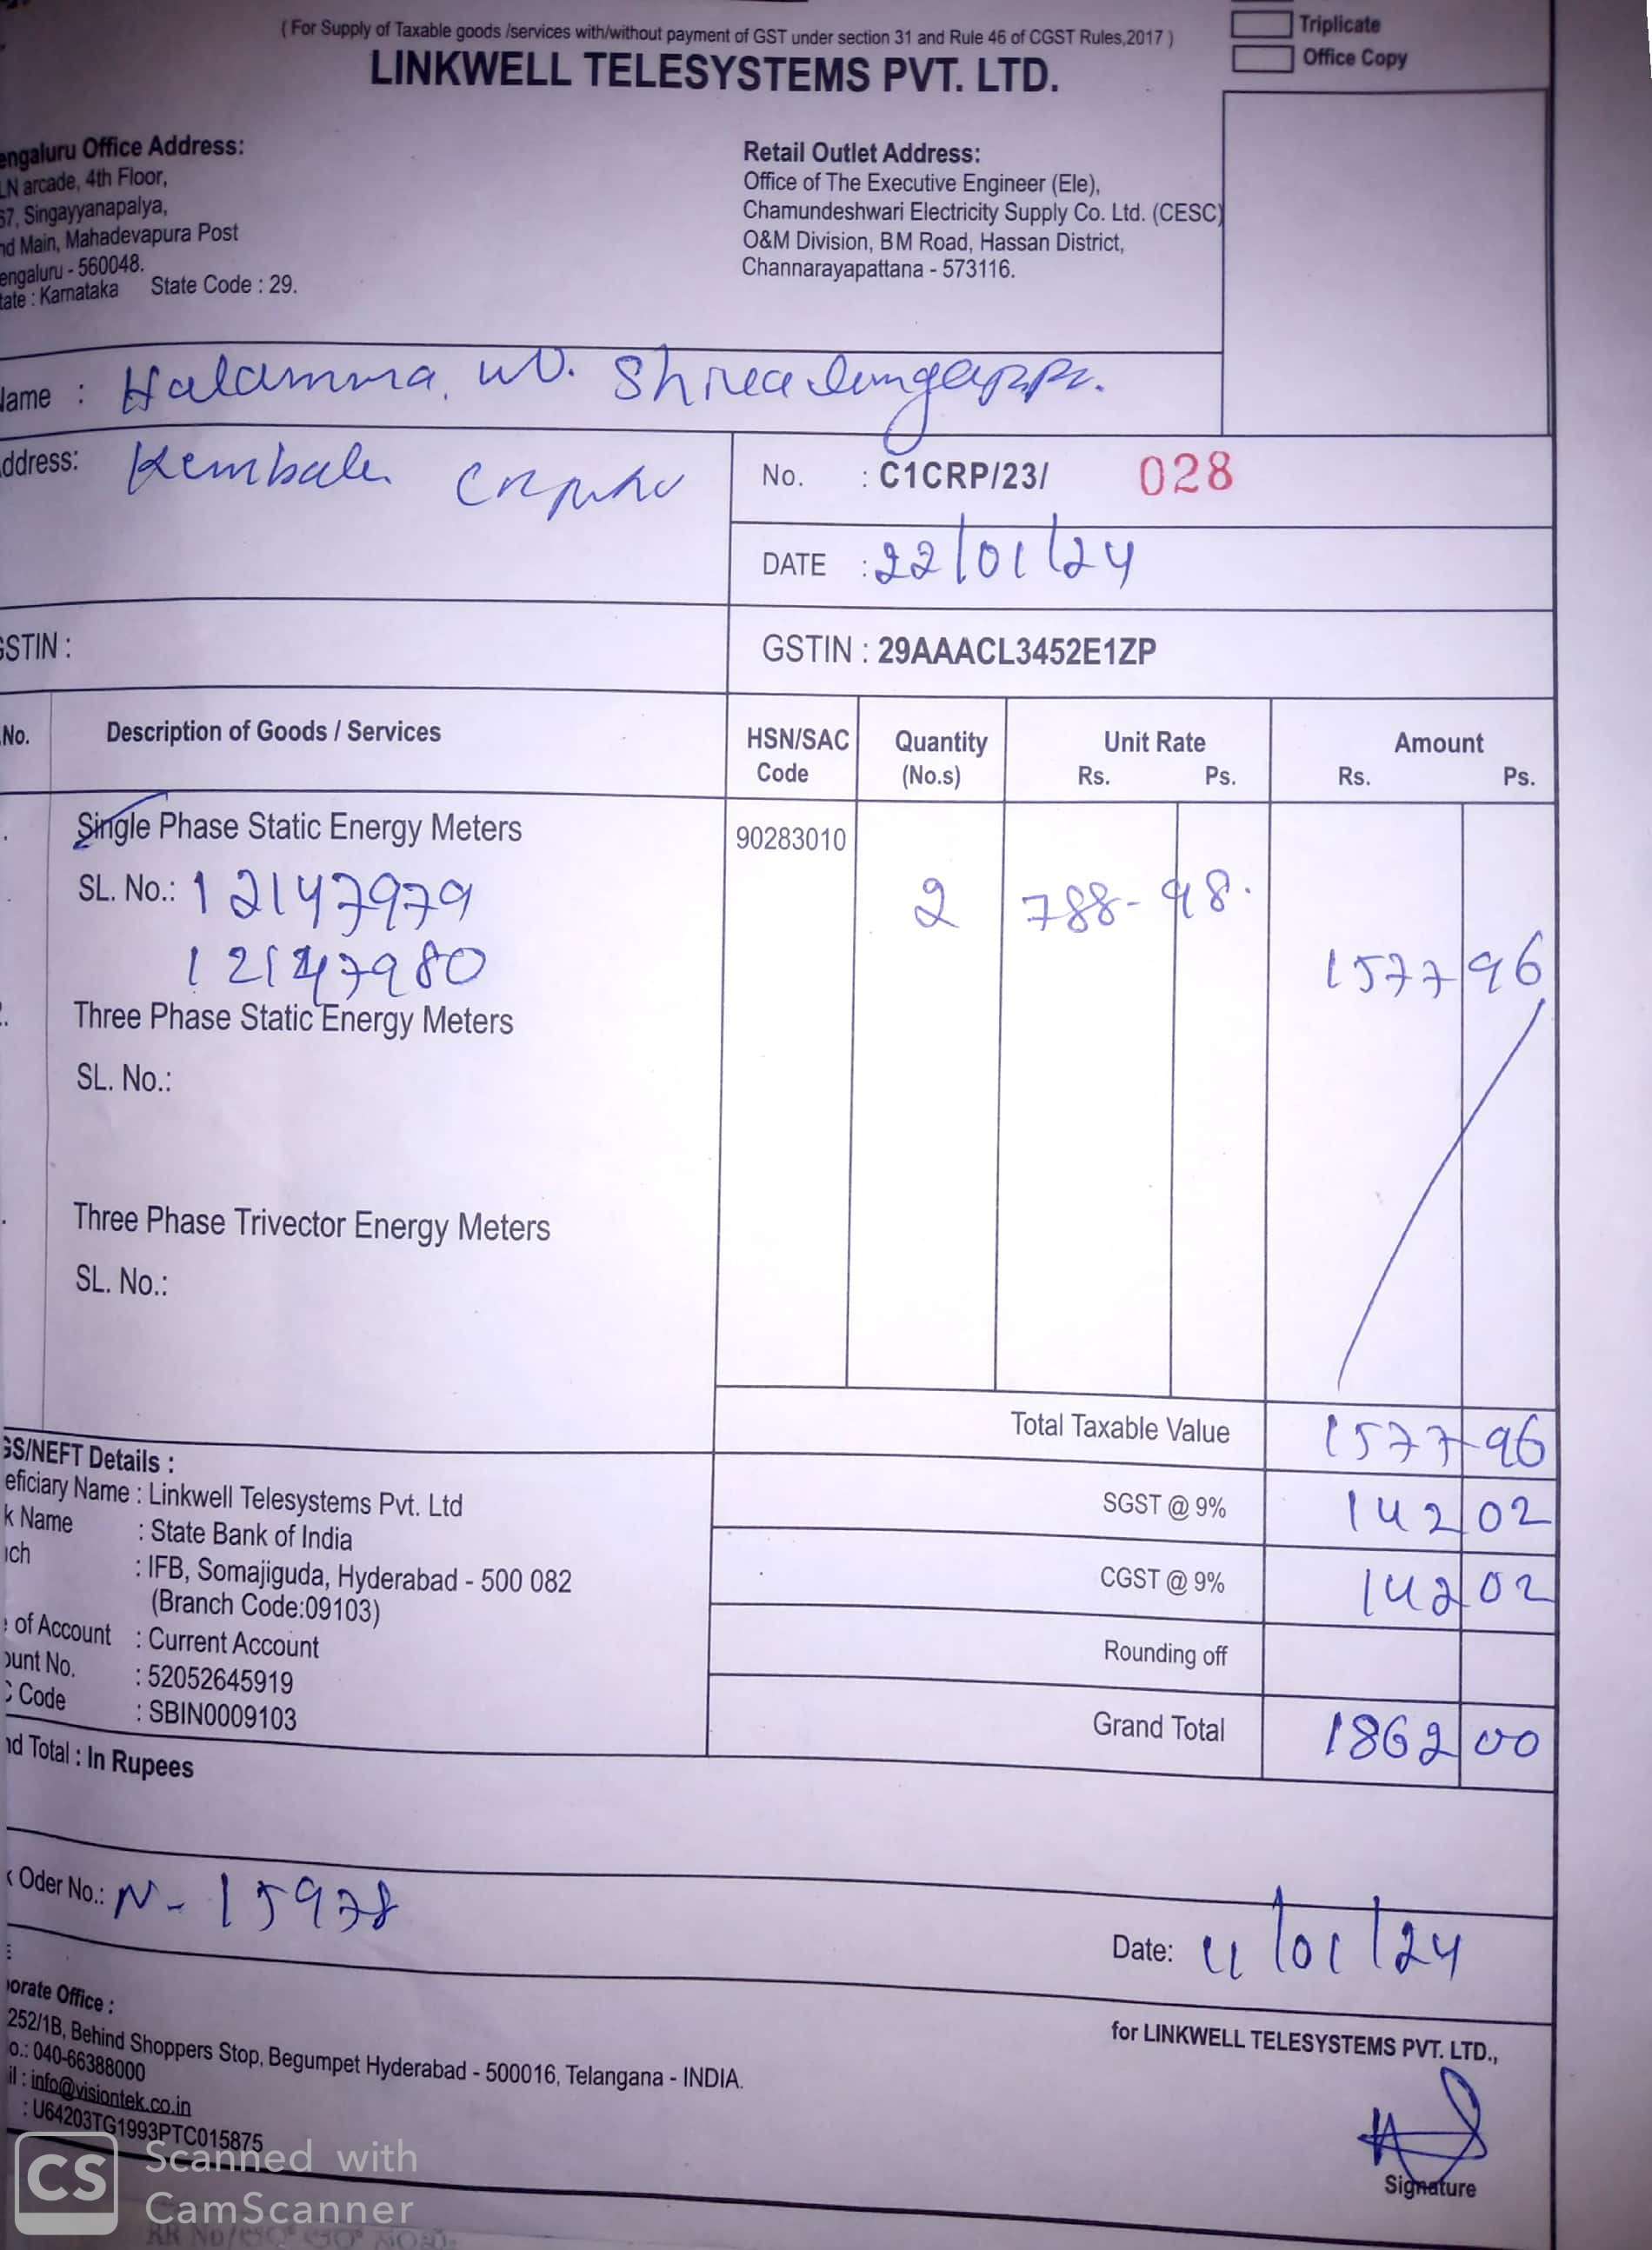 ( For Supply of Taxable goods /services with/without payment of GST under section 31 and Rule 46 of CGST Rules,2017 )
Triplicate
Office Copy
LINKWELL TELESYSTEMS PVT. LTD.
engaluru Office Address:
LN arcade, 4th Floor,
67, Singayyanapalya,
nd Main, Mahadevapura Post
engaluru - 560048.
tate : Karnataka State Code : 29.
Retail Outlet Address:
Office of The Executive Engineer (Ele),
Chamundeshwari Electricity Supply Co. Ltd. (CESC)
O&M Division, BM Road, Hassan District,
Channarayapattana - 573116.
Name : Halamma
ddress:
No. : C1CRP/23/ 028
DATE : 22/01/24
GSTIN :
GSTIN : 29AAACL3452E1ZP
No. Description of Goods / Services HSN/SAC Code Quantity (No.s) Unit Rate Rs. Ps. Amount Rs. Ps.
Single Phase Static Energy Meters 90283010
SL. No.: 12147979 2 788-98. 1577 96
12147980
Three Phase Static Energy Meters
SL. No.:
Three Phase Trivector Energy Meters
SL. No.:
Total Taxable Value 1577 96
SGST @ 9% 142 02
CGST @ 9% 142 02
Rounding off
Grand Total 1862 00
GS/NEFT Details :
eficiary Name : Linkwell Telesystems Pvt. Ltd
k Name : State Bank of India
nch : IFB, Somajiguda, Hyderabad - 500 082
(Branch Code:09103)
of Account : Current Account
ount No. : 52052645919
C Code : SBIN0009103
nd Total : In Rupees
k Oder No.: N- 15978
Date: 11/01/24
porate Office :
252/1B, Behind Shoppers Stop, Begumpet Hyderabad - 500016, Telangana - INDIA.
o.: 040-66388000
il : info@visiontek.co.in
: U64203TG1993PTC015875
for LINKWELL TELESYSTEMS PVT. LTD.,
Signature
CS Scanned with
CamScanner